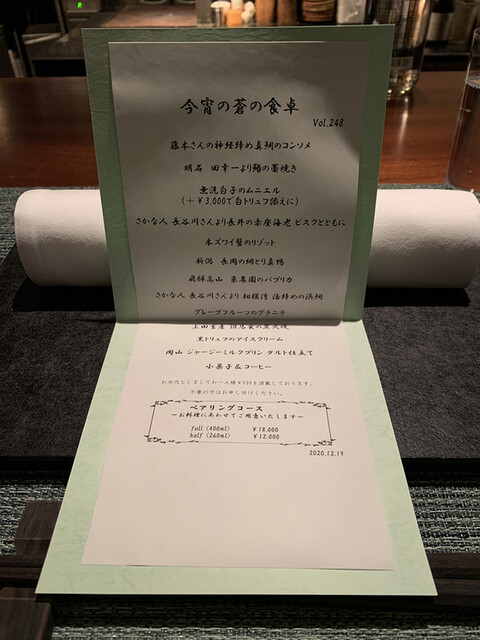 今宵の蒼の食卓
Vol.248
藤本さんの神経締め真鯛のコンソメ
明石 田幸一より鰆の藁焼き
無洗白子のムニエル
(+¥3,000で白トリュフ添えに)
さかな人 長谷川さんより長井の赤座海老 ビスクとともに
本ズワイ蟹のリゾット
新潟 長岡の網とり真鴨
飛騨高山 東農園のパプリカ
さかな人 長谷川さんより 相模湾 活締めの浜鯛
グレープフルーツのグラニテ
黒トリュフのアイスクリーム
岡山 ジャージーミルクプリン タルト仕立て
小菓子&コーヒー
お水代としましてお一人様¥を頂戴しております。
不要の方はお申し付けください。
ペアリングコース
〜お料理にあわせてご用意いたします〜
full (400ml) ¥18,000
half (260ml) ¥12,000
2020.12.19